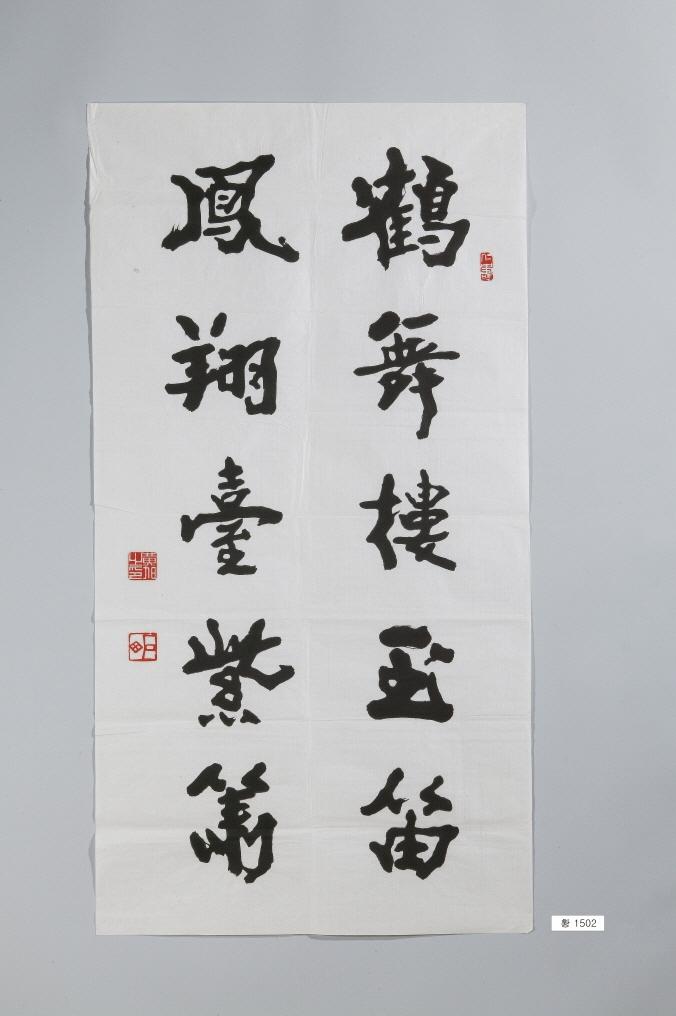 鶴舞樓玉笛
鳳翔臺紫簫
황 1502